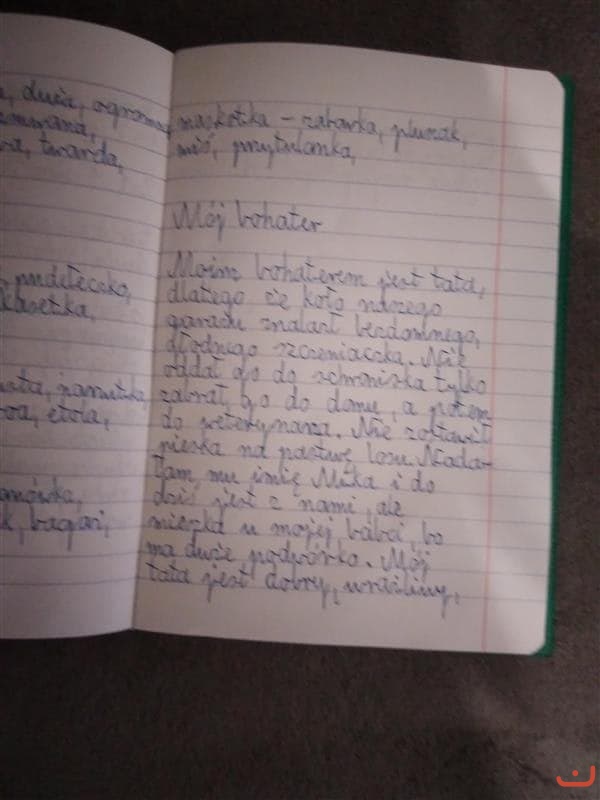 duża, ogromna,
twarda,
pudełeczko,
kasetka,
etola,
bagaż,
maskotka – zabawka, pluszak,
miś, przytulanka,
Mój bohater
Moim bohaterem jest tata,
dlatego że koło naszego
garażu znalazł bezdomnego,
głodnego szczeniaczka. Nie
oddał go do schroniska tylko
zabrał go do domu, a potem
do weterynarza. Nie zostawił
pieska na pastwę losu. Nada-
łam mu imię Mika i do
dziś jest z nami, ale
mieszka u mojej babci, bo
ma duże podwórko. Mój
tata jest dobry, wrażliwy,